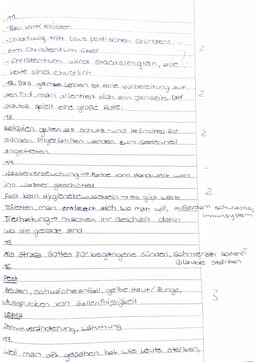 11.
- Bau vom Klöstern
- Chlodwig tritt (aus politischen Gründen)
zum Christentum über
- Christentum wird Staatsreligion, alle
Leute sind christlich
12. Das ganze Leben ist eine Vorbereitung auf
den Tod, man orientiert sich am Jenseits. Der
Glaube spielt eine große Rolle.
13.
Reliquien gelten als Schutz- und Heilmittel für
Sünden. Pilgerfahrten werden zum Seelenheil
angetreten.
14.
Wasserverseuchung → Farbe vom Handwerk wird
ins Wasser geschüttet
Fast kein Hygienebewusstsein → es gibt keine
Toiletten, man entleert sich wo man will, außerdem schwaches
Immunsystem
Tierhaltung → machen ihr Geschäft dahin
wo sie gerade sind
15.
Als Strafe Gottes für begangene Sünden, Schmerzen sollen
Glaube stärken
16.
Pest
Beulen, Schwächeanfall, gelbe Haut/Zunge,
Ausspucken von Gallenflüssigkeit
Lepra
Stimmveränderung, Lähmung
17.
Weil man oft gesehen hat wie Leute sterben,
2
2
2
2
3